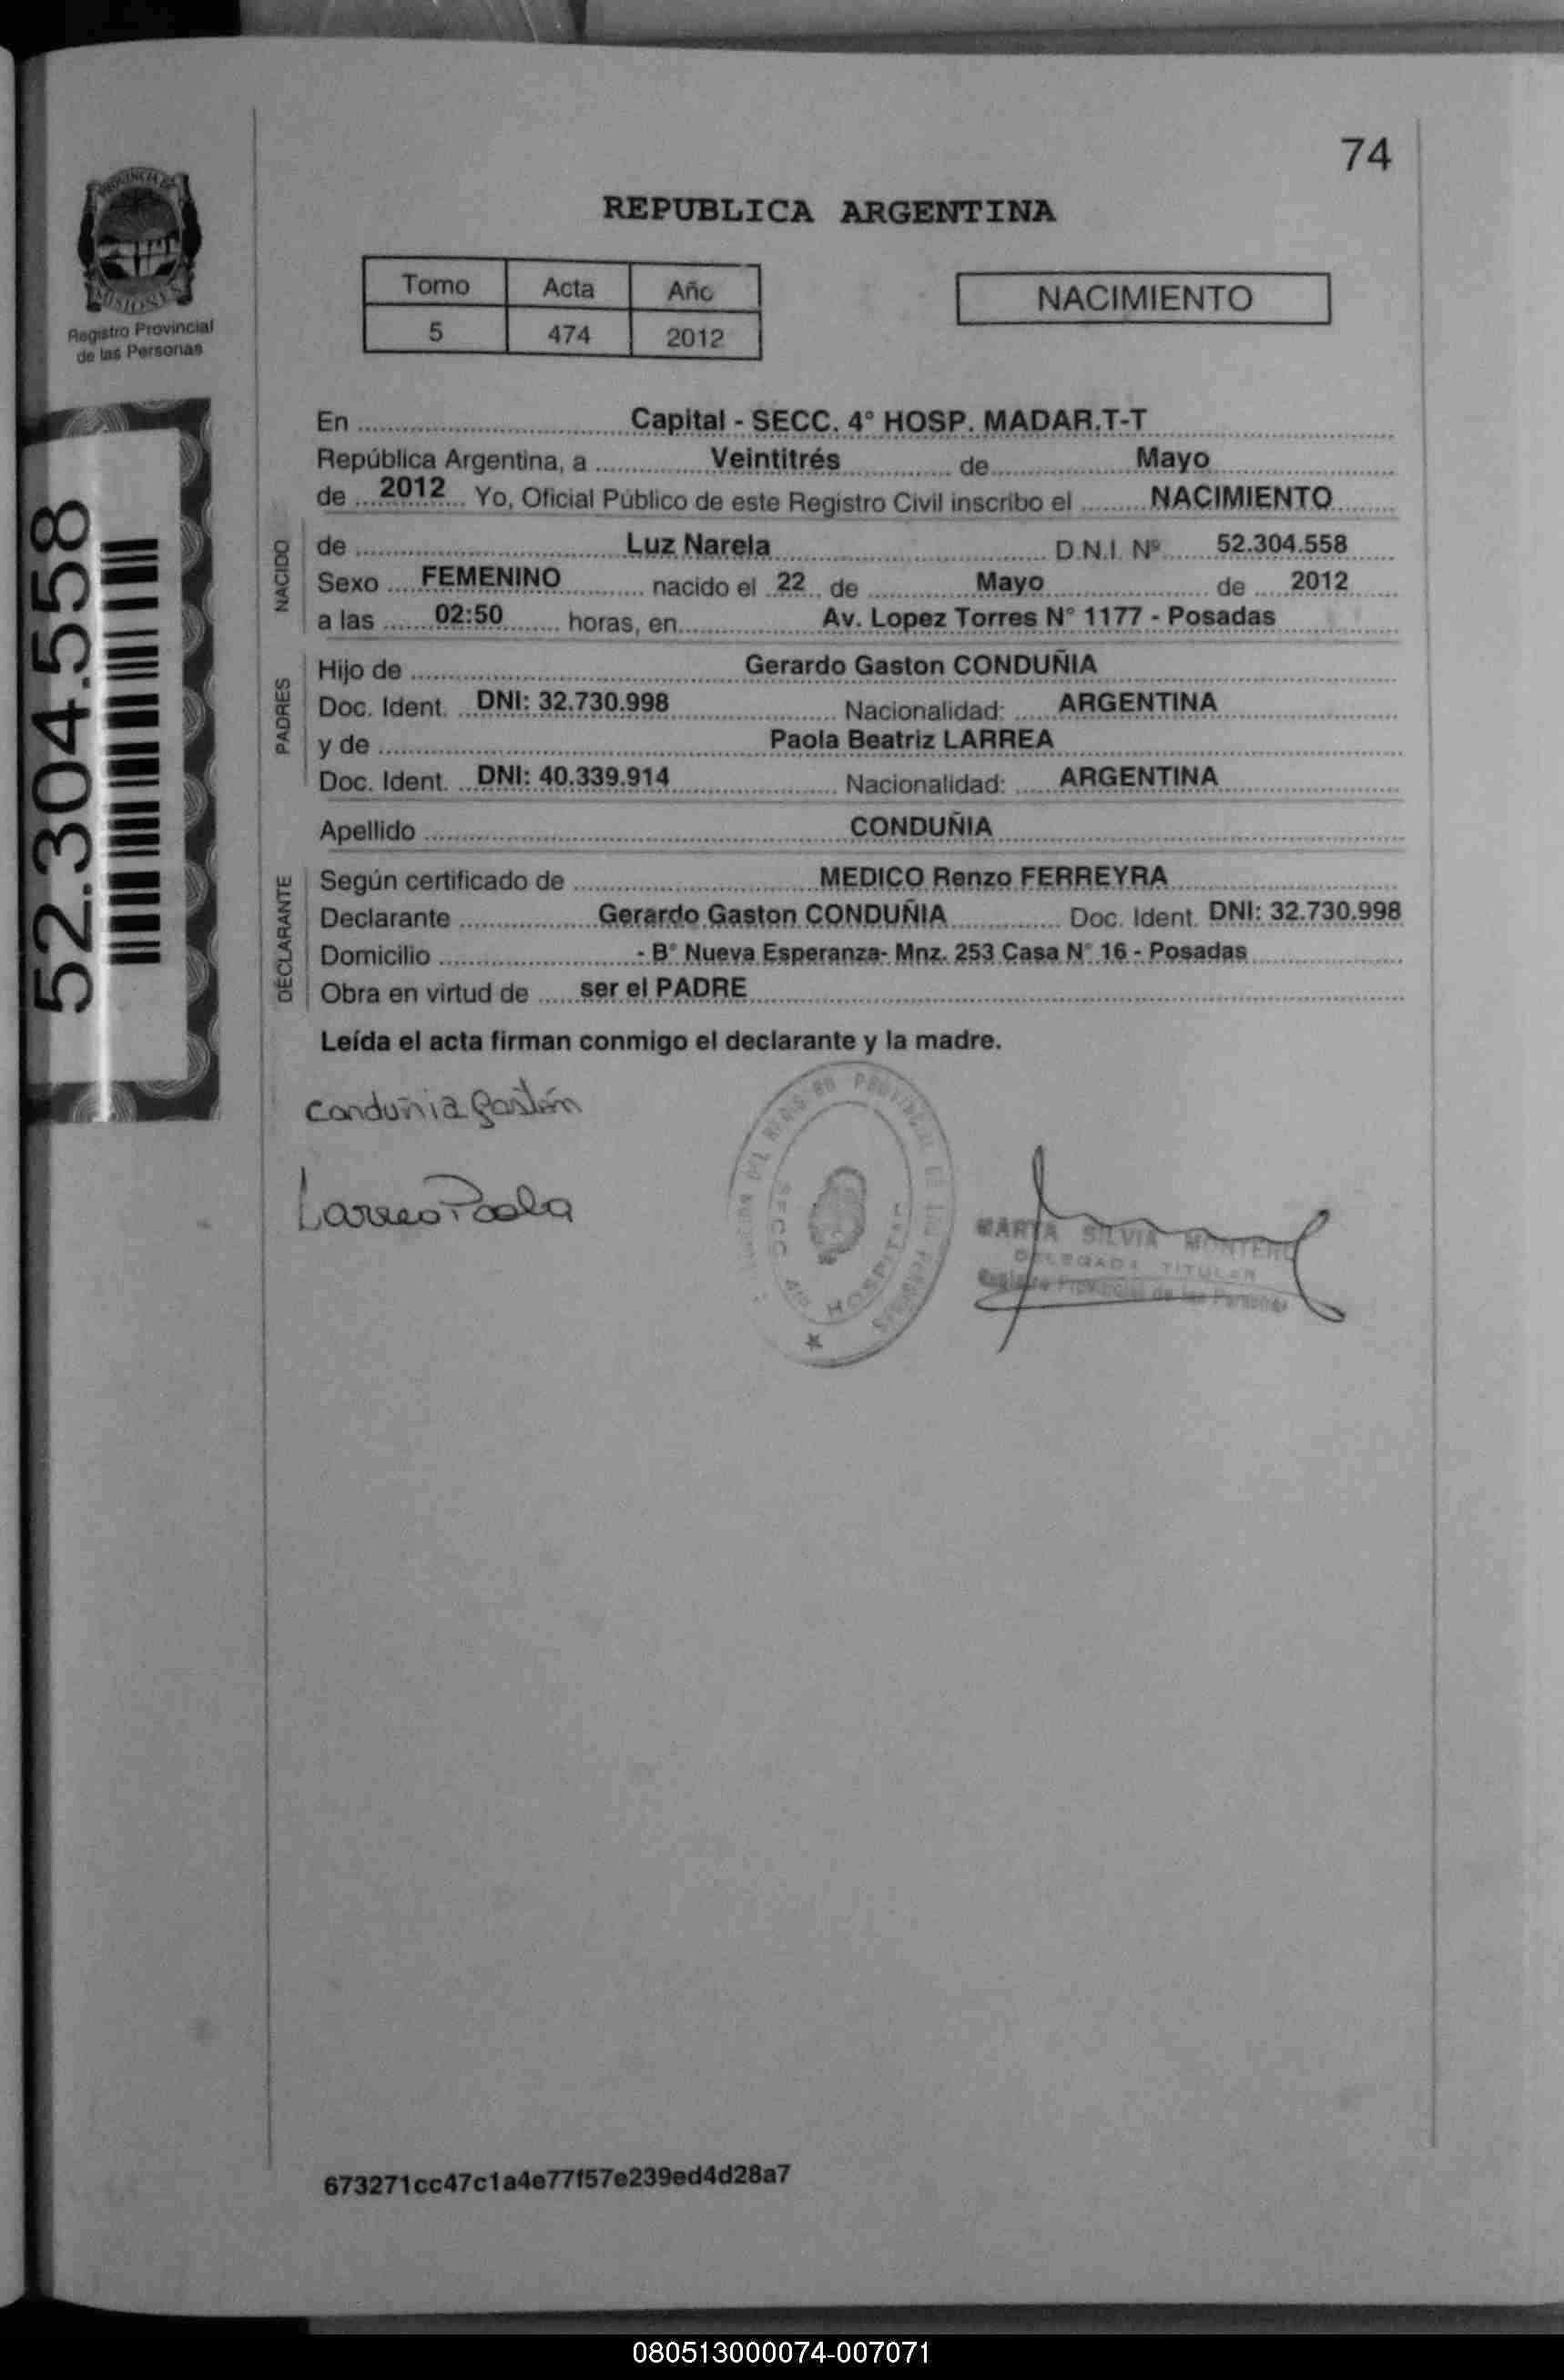 74
PROVINCIA DE
MISIONES
Registro Provincial
de las Personas
REPUBLICA ARGENTINA
Tomo Acta Año
5 474 2012
NACIMIENTO
52.304.558
En Capital - SECC. 4° HOSP. MADAR.T-T
República Argentina, a Veintitrés de Mayo
de 2012 Yo, Oficial Público de este Registro Civil inscribo el NACIMIENTO
NACIDO
de Luz Narela D.N.I. Nº 52.304.558
Sexo FEMENINO nacido el 22 de Mayo de 2012
a las 02:50 horas, en Av. Lopez Torres N° 1177 - Posadas
PADRES
Hijo de Gerardo Gaston CONDUÑIA
Doc. Ident. DNI: 32.730.998 Nacionalidad: ARGENTINA
y de Paola Beatriz LARREA
Doc. Ident. DNI: 40.339.914 Nacionalidad: ARGENTINA
Apellido CONDUÑIA
DECLARANTE
Según certificado de MEDICO Renzo FERREYRA
Declarante Gerardo Gaston CONDUÑIA Doc. Ident. DNI: 32.730.998
Domicilio - B° Nueva Esperanza- Mnz. 253 Casa N° 16 - Posadas
Obra en virtud de ser el PADRE
Leída el acta firman conmigo el declarante y la madre.
Conduñia Gastón
Larrea Paola
SECC 4ta HOSPITAL
MARTA SILVIA MONTERO
DELEGADA TITULAR
Registro Provincial de las Personas
673271cc47c1a4e77f57e239ed4d28a7
080513000074-007071